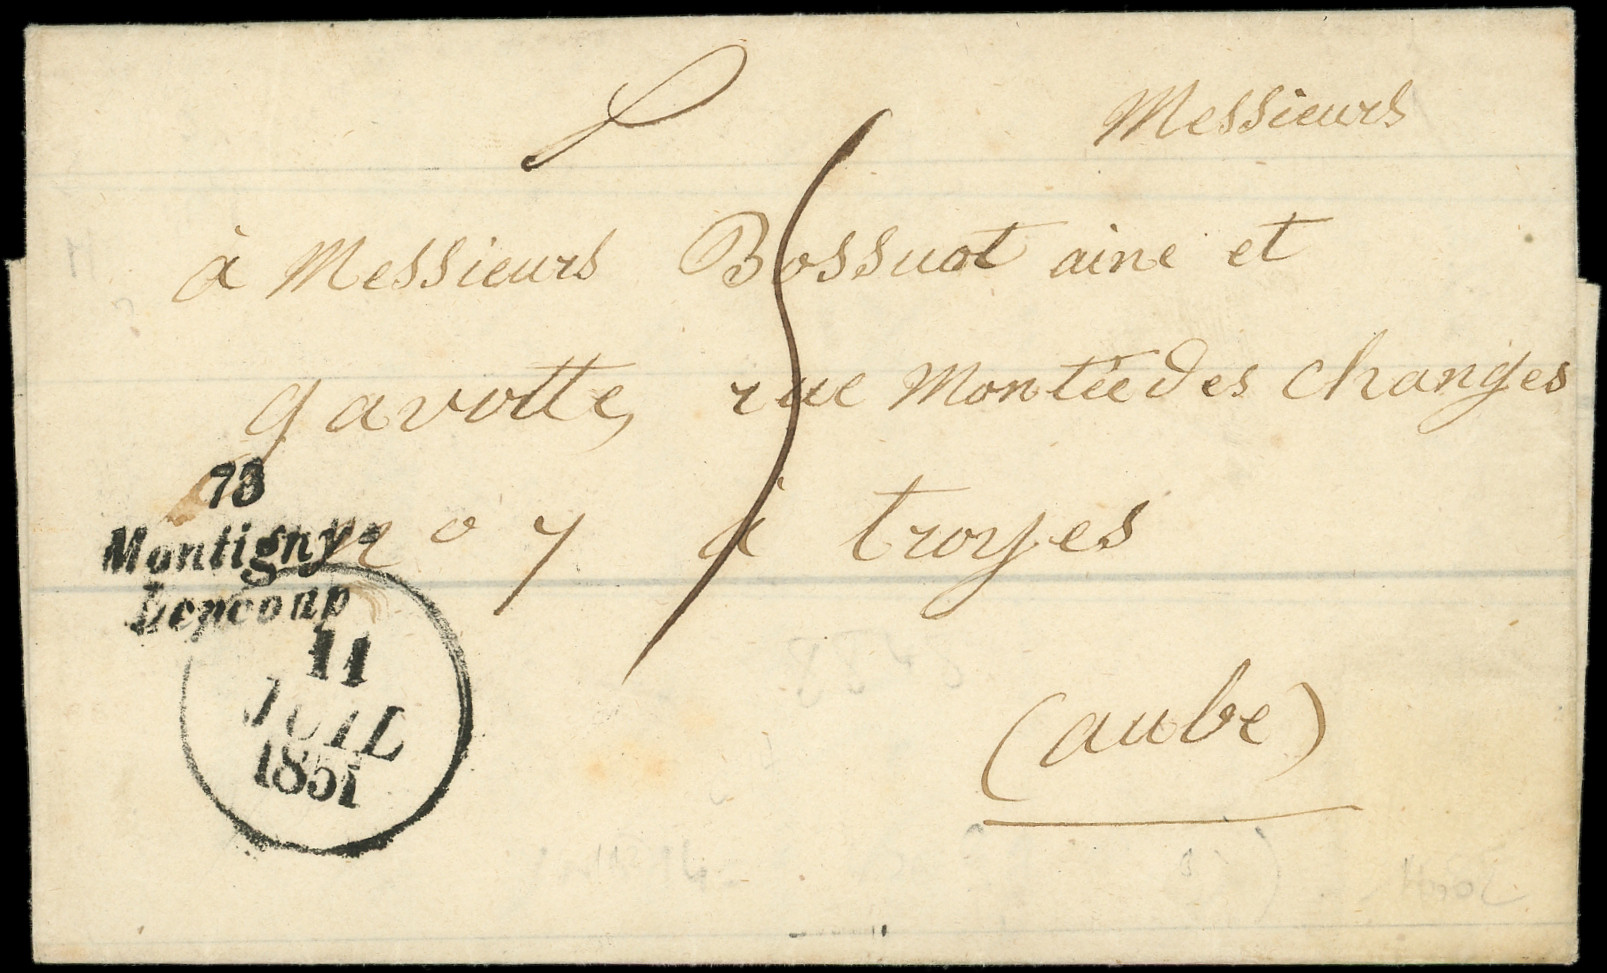 Messieurs
à Messieurs Bossuot aine et
gavotte, rue Montée des changes
no 7 à troyes
(aube)
73
Montigny-
Lencoup
11
JUIL
1851